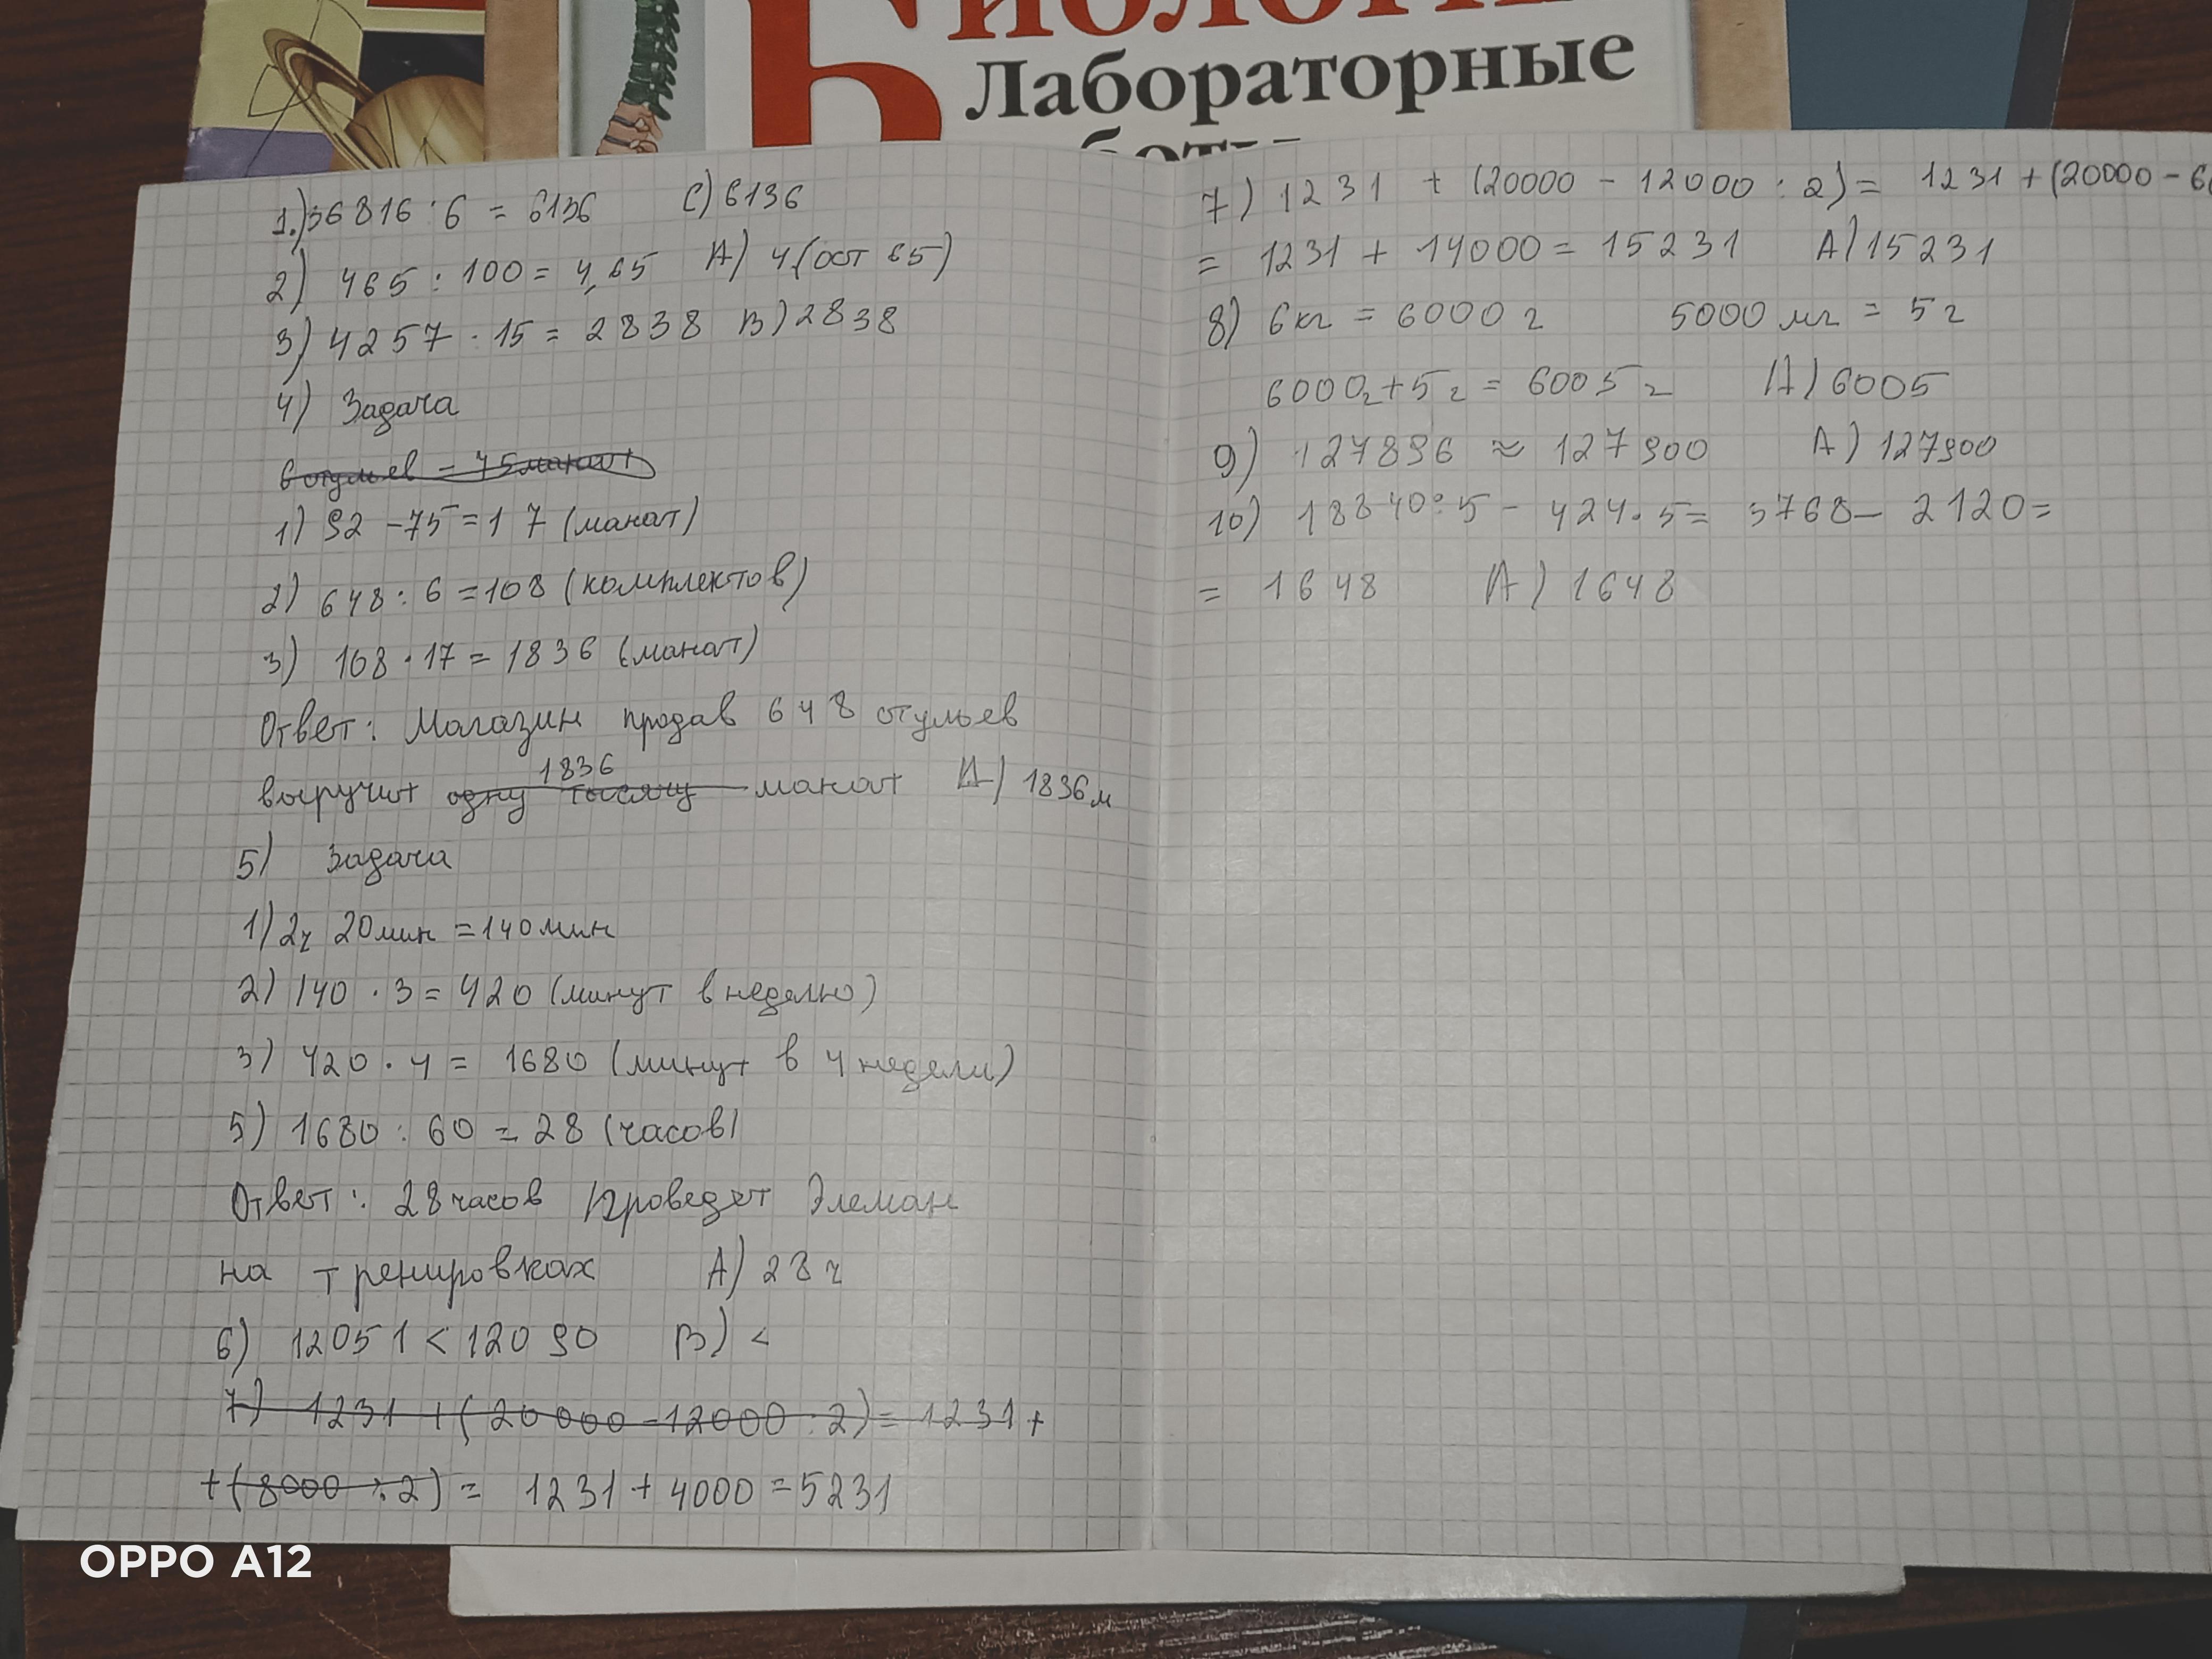 Биология
Лабораторные
работы
1.) 36816 : 6 = 6136 C) 6136
2) 465 : 100 = 4,65 A) 4 (ост 65)
3) 4257 : 15 = 2838 B) 2838
4) Задача
6 стульев – 75 манат
1) 92 – 75 = 17 (манат)
2) 648 : 6 = 108 (комплектов)
3) 108 · 17 = 1836 (манат)
Ответ: Магазин продав 648 стульев
1836
выручит одну тысячу манат A) 1836 м
5) Задача
1) 2ч 20мин = 140мин
2) 140 · 3 = 420 (минут в неделю)
3) 420 · 4 = 1680 (минут в 4 недели)
5) 1680 : 60 = 28 (часов)
Ответ: 28 часов проведет Элеман
на тренировках A) 28 ч
6) 12051 < 12090 B) <
7) 1231 + (20000 – 12000 : 2) = 1231 +
+ (8000 : 2) = 1231 + 4000 = 5231
7) 1231 + (20000 – 12000 : 2) = 1231 + (20000 – 60
= 1231 + 14000 = 15231 A) 15231
8) 6кг = 6000 г 5000 мг = 5 г
6000г + 5 г = 6005 г A) 6005
9) 127896 ≈ 127900 A) 127900
10) 18840 : 5 – 424 · 5 = 3768 – 2120 =
= 1648 A) 1648
OPPO A12